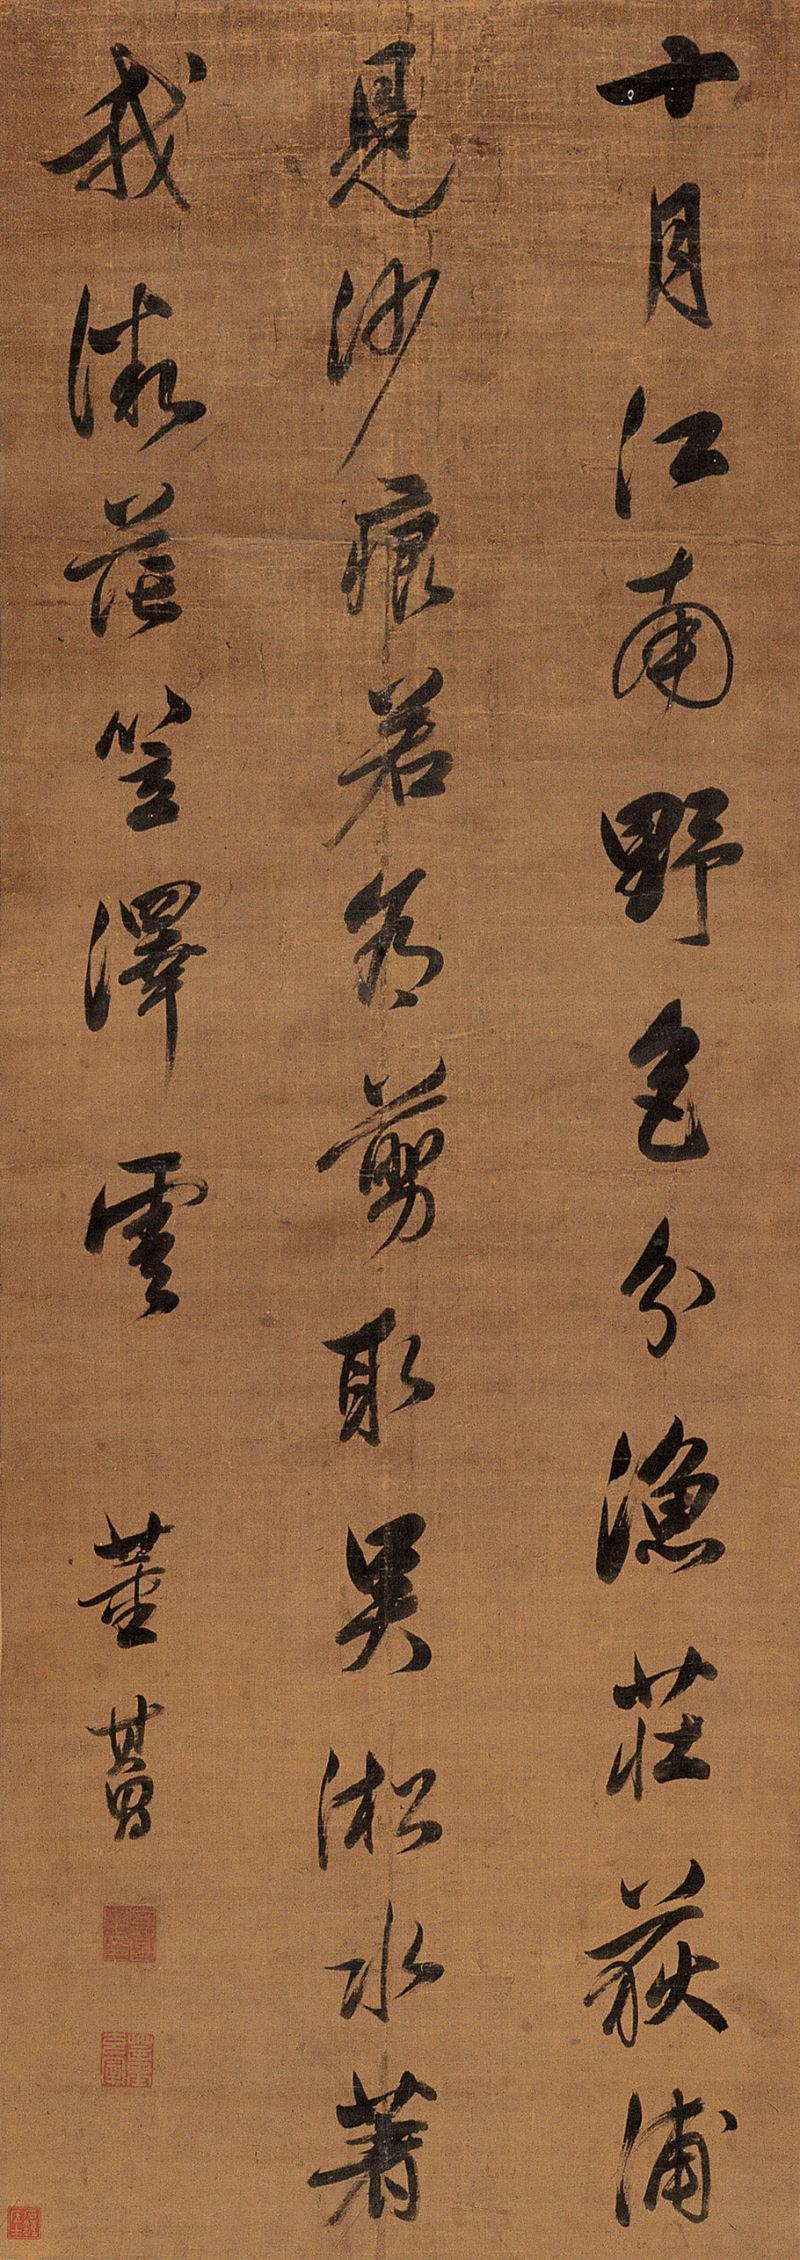 十月江南野色分漁莊荻浦
見沙痕若為剪取吳淞水著
我微茫笠澤雲
董其昌